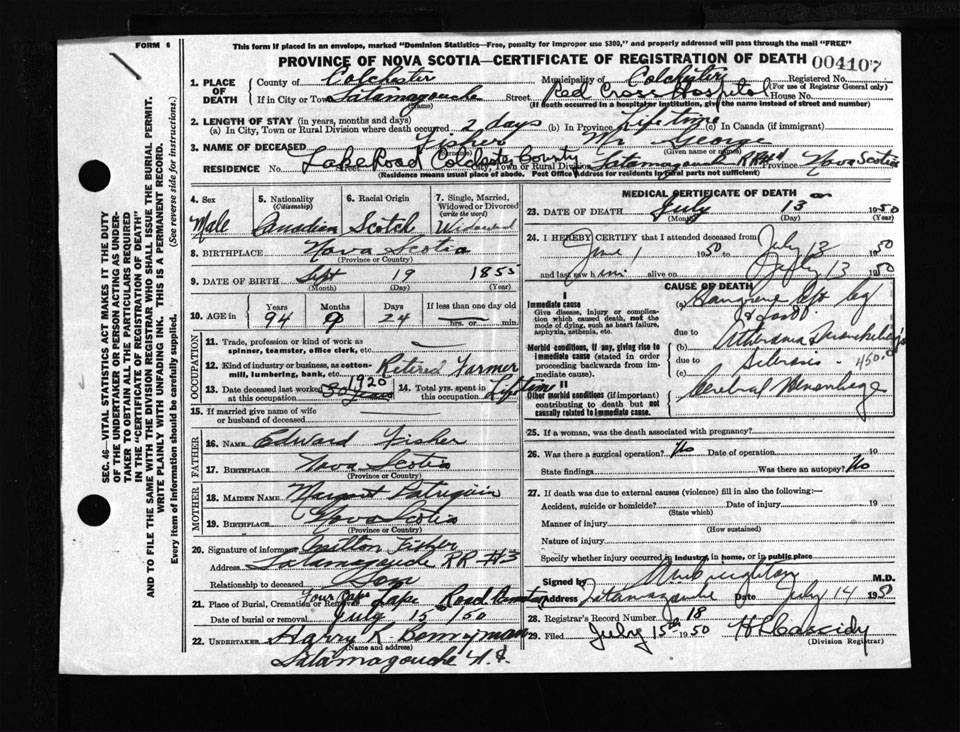 FORM 6
This form if placed in an envelope, marked "Dominion Statistics—Free, penalty for improper use $300," and properly addressed will pass through the mail "FREE"
PROVINCE OF NOVA SCOTIA—CERTIFICATE OF REGISTRATION OF DEATH 004107
1. PLACE OF DEATH County of Colchester Municipality of Colchester Registered No.
(For use of Registrar General only)
If in City or Town Tatamagouche Street Red Cross Hospital House No.
(Name) (If death occurred in a hospital or institution, give the name instead of street and number)
2. LENGTH OF STAY (in years, months and days)
(a) In City, Town or Rural Division where death occurred 2 days (b) In Province Lifetime (c) In Canada (if immigrant)
3. NAME OF DECEASED Fisher Mr George
(Given name or names)
RESIDENCE No. Lake Road Street Colchester County City, Town or Rural Div. Tatamagouche RR#3 Province Nova Scotia
(Residence means usual place of abode. Post Office Address for residents in rural parts not sufficient)
4. Sex Male
5. Nationality (Citizenship) Canadian
6. Racial Origin Scotch
7. Single, Married, Widowed or Divorced (write the word) Widowed
8. BIRTHPLACE Nova Scotia
(Province or Country)
9. DATE OF BIRTH Sept 19 1855
(Month) (Day) (Year)
10. AGE in Years Months Days If less than one day old
94 9 24 hrs. or min.
OCCUPATION
11. Trade, profession or kind of work as spinner, teamster, office clerk, etc.
12. Kind of industry or business, as cotton-mill, lumbering, bank, etc. Retired Farmer
13. Date deceased last worked at this occupation 1920 30 years
14. Total yrs. spent in this occupation Lifetime
15. If married give name of wife or husband of deceased
FATHER
16. NAME Edward Fisher
17. BIRTHPLACE Nova Scotia
(Province or Country)
MOTHER
18. MAIDEN NAME Margaret Patriquin
19. BIRTHPLACE Nova Scotia
(Province or Country)
20. Signature of informant Milton Fisher
Address Tatamagouche RR #3
Relationship to deceased Son
21. Place of Burial, Cremation or Removal Lake Road
Date of burial or removal July 15 1950
22. UNDERTAKER Harry K Bonnyman
(Name and address)
Tatamagouche N.S.
MEDICAL CERTIFICATE OF DEATH
23. DATE OF DEATH July 13 1950
(Month) (Day) (Year)
24. I HEREBY CERTIFY that I attended deceased from
June 1 1950 to July 13 1950
and last saw him alive on July 13 1950
CAUSE OF DEATH
I
Immediate cause
Give disease, injury or complication which caused death, not the mode of dying, such as heart failure, asphyxia, asthenia, etc.
(a) Gangrene left leg
& foot
due to
Morbid conditions, if any, giving rise to immediate cause (stated in order proceeding backwards from immediate cause).
(b)
due to
(c)
450.0
II
Other morbid conditions (if important) contributing to death but not causally related to immediate cause.
Cerebral Hemorrhage
25. If a woman, was the death associated with pregnancy?
26. Was there a surgical operation? No Date of operation 19
State findings Was there an autopsy? No
27. If death was due to external causes (violence) fill in also the following:—
Accident, suicide or homicide? Date of injury 19
(State which)
Manner of injury
(How sustained)
Nature of injury
Specify whether injury occurred in industry, in home, or in public place
Signed by M.D.
Address Tatamagouche Date July 14 1950
28. Registrar's Record Number 18
29. Filed July 15th 1950 H L Cassidy
(Division Registrar)
SEC. 46—VITAL STATISTICS ACT MAKES IT THE DUTY
OF THE UNDERTAKER OR PERSON ACTING AS UNDER-
TAKER TO OBTAIN ALL THE PARTICULARS REQUIRED
IN THE "CERTIFICATE OF REGISTRATION OF DEATH"
AND TO FILE THE SAME WITH THE DIVISION REGISTRAR WHO SHALL ISSUE THE BURIAL PERMIT.
WRITE PLAINLY WITH UNFADING INK. THIS IS A PERMANENT RECORD.
Every item of Information should be carefully supplied. (See reverse side for instructions.)